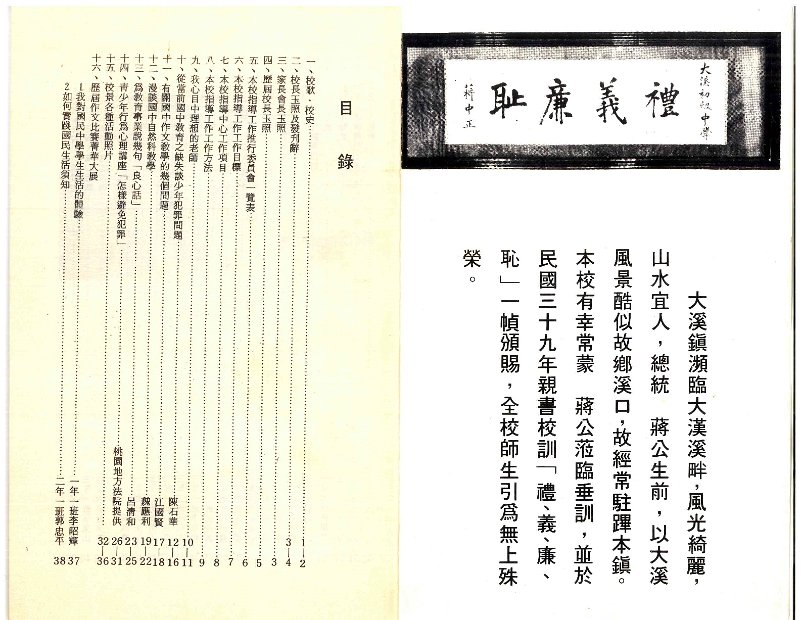 大溪初級中學
禮義廉耻
蔣中正
大溪鎮瀕臨大漢溪畔，風光綺麗，
山水宜人，總統　蔣公生前，以大溪
風景酷似故鄉溪口，故經常駐蹕本鎮。
本校有幸常蒙　蔣公蒞臨垂訓，並於
民國三十九年親書校訓「禮、義、廉、
恥」一幀頒賜，全校師生引爲無上殊
榮。
目錄
一、校歌、校史……1—2
二、校長玉照及發刊辭……3—4
三、家長會長玉照……3
四、歷屆校長玉照……5
五、本校指導工作推行委員會一覽表……6
六、本校指導工作工作目標……7
七、本校指導中心工作項目……8
八、本校指導工作工作方法……9
九、我心目中理想的老師……10—11
十、從當前國中教育之缺失談少年犯罪問題……陳石華 12—16
十一、有關國中作文教學的幾個問題……江國賢 17—18
十二、漫談國中自然科教學……魏應利 19—22
十三、爲教育事業說幾句「良心話」……呂清和 23—25
十四、青少年行爲心理講座「怎樣避免犯罪」……桃園地方法院提供 26—31
十五、校景各種活動照片……32—36
十六、歷屆作文比賽菁華大展
1我對國民中學學生生活的體驗……一年一班李昭輝 37
2如何實踐國民生活須知……二年一班郭忠平 38